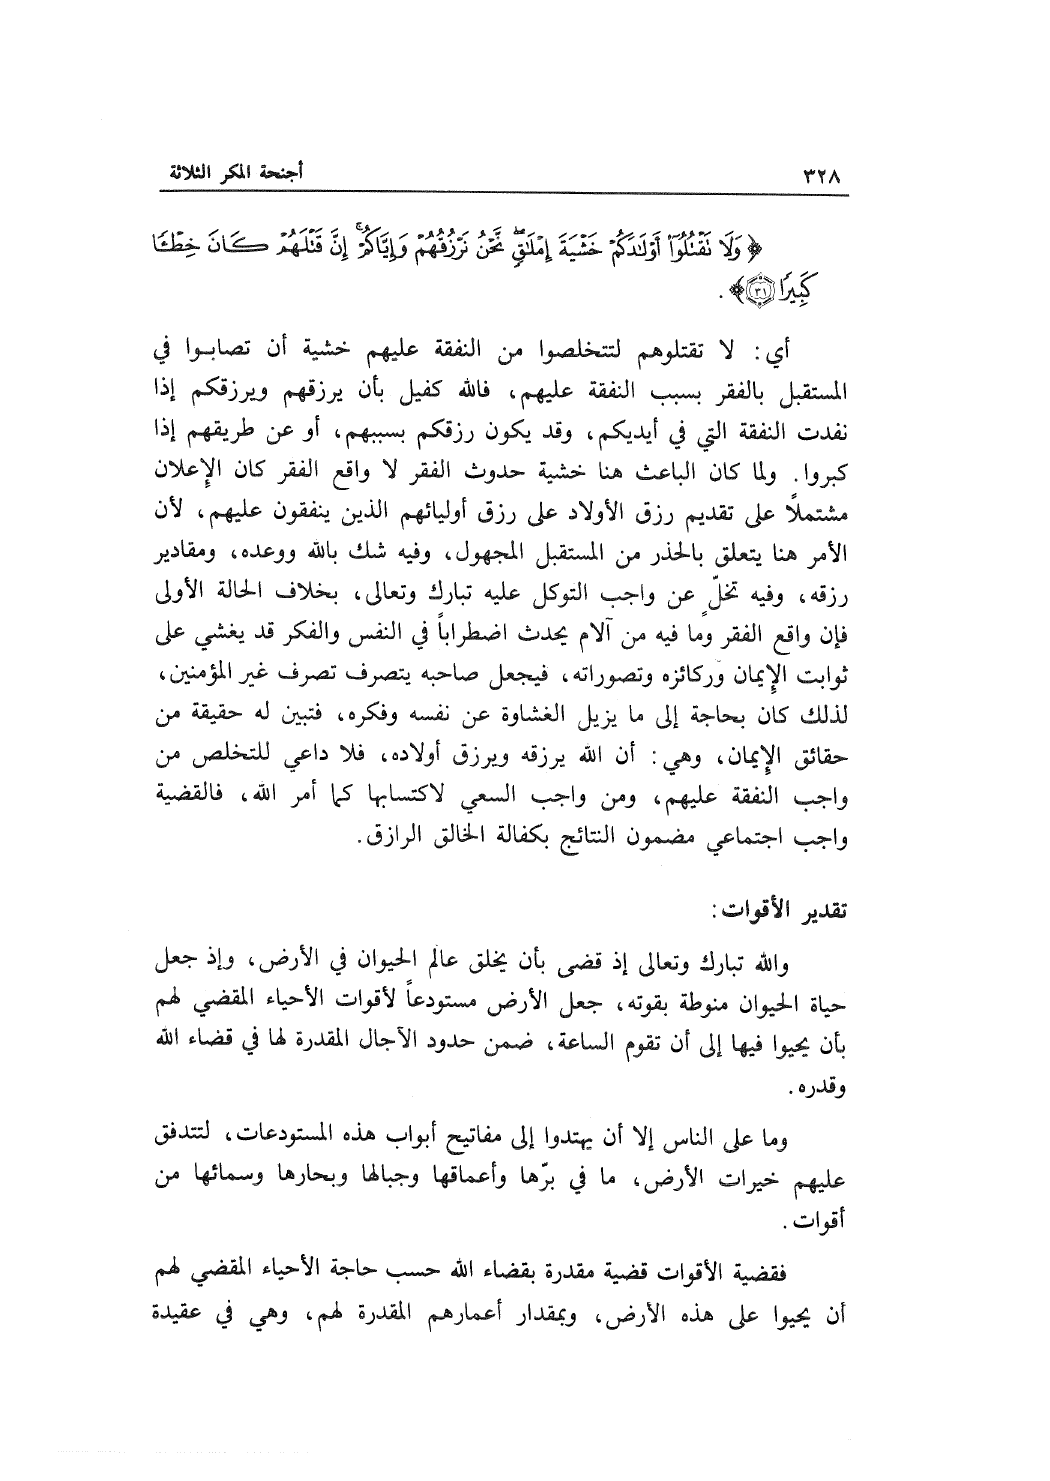 ٣٢٨ أجنحة المكر الثلاثة
﴿ وَلَا نَقْتُلُوٓا۟ أَوْلَٰدَكُمْ خَشْيَةَ إِمْلَٰقٍ ۖ نَّحْنُ نَرْزُقُهُمْ وَإِيَّاكُمْ ۚ إِنَّ قَتْلَهُمْ كَانَ خِطْـًٔا
كَبِيرًا ٣١ ﴾ .
أي : لا تقتلوهم لتتخلصوا من النفقة عليهم خشية أن تصابـوا في
المستقبل بالفقر بسبب النفقة عليهم، فالله كفيل بأن يرزقهم ويرزقكم إذا
نفدت النفقة التي في أيديكم، وقد يكون رزقكم بسببهم، أو عن طريقهم إذا
كبروا. ولما كان الباعث هنا خشية حدوث الفقر لا واقع الفقر كان الإعلان
مشتملاً على تقديم رزق الأولاد على رزق أوليائهم الذين ينفقون عليهم، لأن
الأمر هنا يتعلق بالحذر من المستقبل المجهول، وفيه شك بالله ووعده، ومقادير
رزقه، وفيه تخلّ عن واجب التوكل عليه تبارك وتعالى، بخلاف الحالة الأولى
فإن واقع الفقر وما فيه من آلام يحدث اضطراباً في النفس والفكر قد يغشي على
ثوابت الإيمان وركائزه وتصوراته، فيجعل صاحبه يتصرف تصرف غير المؤمنين،
لذلك كان بحاجة إلى ما يزيل الغشاوة عن نفسه وفكره، فتبين له حقيقة من
حقائق الإيمان، وهي : أن الله يرزقه ويرزق أولاده، فلا داعي للتخلص من
واجب النفقة عليهم، ومن واجب السعي لاكتسابها كما أمر الله، فالقضية
واجب اجتماعي مضمون النتائج بكفالة الخالق الرازق.
تقدير الأقوات :
والله تبارك وتعالى إذ قضى بأن يخلق عالم الحيوان في الأرض، وإذ جعل
حياة الحيوان منوطة بقوته، جعل الأرض مستودعاً لأقوات الأحياء المقضي لهم
بأن يحيوا فيها إلى أن تقوم الساعة، ضمن حدود الآجال المقدرة لها في قضاء الله
وقدره.
وما على الناس إلا أن يهتدوا إلى مفاتيح أبواب هذه المستودعات، لتتدفق
عليهم خيرات الأرض، ما في برّها وأعماقها وجبالها وبحارها وسمائها من
أقوات.
فقضية الأقوات قضية مقدرة بقضاء الله حسب حاجة الأحياء المقضي لهم
أن يحيوا على هذه الأرض، وبمقدار أعمارهم المقدرة لهم، وهي في عقيدة